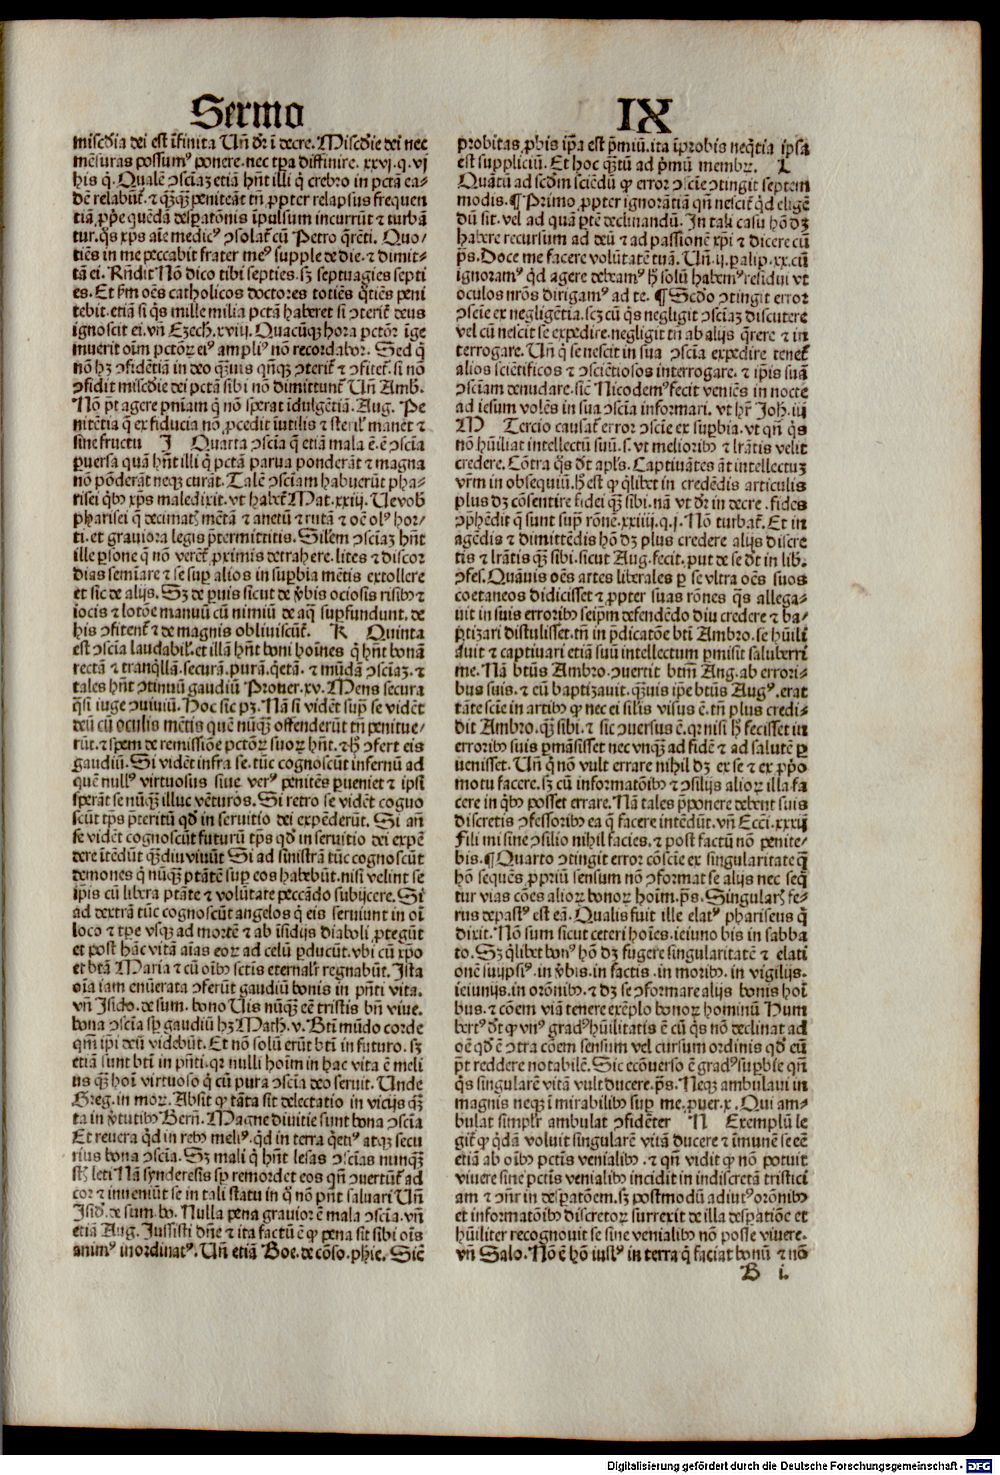 Sermo IX
misc̄dia dei est īfinita Uñ dr̄ ī decre. Misc̄die dei nec
mēsuras possumꝰ ponere. nec tꝑa diffinire. xxvj. q. vj
his q̄. Qualē ↄsciaꝫ etiā hn̄t illi q̄ crebro in pctā ea-
dē relabūt᷑. ⁊ qᷓꝫqᷓꝫ peniteāt tn̄ ꝓpter relapsus frequen
tiā. ꝓpe quēdā despatōnis īpulsum incurrūt ⁊ turbā
tur. qͥs xp̄s aīe medicꝰ ↄsolat᷑ cū Petro q̄rēti. Quo-
tiēs in me peccabit frater meꝰ supple de die. ⁊ dimit-
tā ei. Rn̄dit Nō dico tibi septies. sꝫ septuagies septi
es. Et ẜm oēs catholicos doctores totiēs qͦtiēs peni
tebit. etiā si qͥs mille milia pctā haberet si ↄterit᷑ deus
ignoscit ei. vn̄ Ezech. xviij. Quacūqꝫ hora pctōr īge
muerit oīm pctōꝝ eiꝰ ampliꝰ nō recordabor. Sed q̄
nō hꝫ ↄfidētiā in deo qᷓꝫuis qn̄qꝫ ↄterit᷑ ⁊ ↄfitet᷑. si nō
ↄfidit misc̄die dei pctā sibi nō dimittunt᷑ Uñ Amb̄.
Nō pt̄ agere pn̄iam q̄ nō sperat īdulgētiā. Aug. Pe
nitētia q̄ ex fiducia nō ꝓcedit īutilis ⁊ sterilꝭ manet ⁊
sine fructu J Quarta ↄscīa q̄ etiā mala ē. ē ↄscīa
ꝑuersa quā hn̄t illi q̄ pctā parua ponderāt ⁊ magna
nō pōderāt neqꝫ curāt. Talē ↄsciam habuerūt pha-
risei qͥbꝰ xp̄s maledixit. vt habet᷑ Mat. xxiij. Ue vob̄
pharisei q̄ decimatꝭ mētā ⁊ anetū ⁊ rutā ⁊ oē olꝰ hor-
ti. et grauiora legis p̄termittitis. Silem ↄsciaꝫ hn̄t
ille ꝑsone q̄ nō verēt᷑ ꝓximis detrahere. lites ⁊ discor
dias semīare ⁊ se suꝑ alios in suꝑbia mētis extollere
et sic de alijs. Sꝫ de ꝑuis sicut de v̄bis ociosis risibꝰ ⁊
iocis ⁊ lotōe manuū cū nimiū de aq̄ suꝑfundunt. de
his ↄfitent᷑ ⁊ de magnis obliviscūt᷑. K Quinta
est ↄscīa laudabilꝭ. et illā hn̄t boni hoīnes q̄ hn̄t bonā
rectā ⁊ tranqͥllā. securā. purā. qͥetā. ⁊ mūdā ↄsciaꝫ. ⁊
tales hn̄t ↄtinuū gaudiū Prouer. xv. Mens secura
qᷓsi iuge ↄuiuiū. Hoc sic pꝫ. Nā si vidēt suꝑ se vidēt
deū cū oculis mētis quē nūqᷓꝫ offenderūt tn̄ penitue-
rūt. ⁊ spem de remissiōe pctōꝝ suoꝝ hn̄t. ⁊ h̄ ↄfert eis
gaudiū. Si vidēt infra se. tūc cognoscūt infernū ad
quē nullꝰ virtuosus siue verꝰ penitēs ꝑueniet ⁊ ipsi
sperāt se nūqᷓꝫ illuc vēturos. Si retro se vidēt cogno
scūt tp̄s p̄teritū qd̄ in seruitio dei expēderūt. Si añ
se vidēt cognoscūt futurū tp̄s qd̄ in seruitio dei expē
dere ītēdūt qᷓꝫdiu viuūt Si ad sinistrā tūc cognoscūt
demones q̄ nūqᷓꝫ ptātē suꝑ eos habebūt. nisi velint se
ip̄is cū libera ptāte ⁊ volūtate peccādo subijcere. Si
ad dextrā tūc cognoscūt angelos q̄ eis seruiunt in oī
loco ⁊ tꝑe vsqꝫ ad mortē ⁊ ab īsidijs diaboli ꝓtegūt
et post hāc vitā aīas eoꝝ ad celū ꝑducūt. vbi cū xp̄o
et btā Maria ⁊ cū oībꝰ sctis eternalꝭr regnabūt. Ista
oīa iam enūerata ↄferūt gaudiū bonis in pn̄ti vita.
vn̄ Isido. de sum. bono Uis nūqᷓꝫ eē tristis bn̄ viue.
bona ↄscīa sꝑ gaudiū hꝫ Math. v. Btī mūdo corde
qm̄ ip̄i deū videbūt. Et nō solū erūt btī in futuro. sꝫ
etiā sunt btī in pn̄ti. qꝛ nulli hoīm in hac vita ē meli
us qᷓꝫ hoī virtuoso q̄ cū pura ↄscīa deo seruit. Unde
Greg. in moꝝ. Absit qꝫ tāta sit delectatio in vicijs qᷓꝫ
ta in v̄tutibꝰ Bern̄. Magne diuitie sunt bona ↄscīa
Et reuera qͥd in rebꝰ meliꝰ. qͥd in terra qͥetiꝰ atqꝫ secu
rius bona ↄscīa. Sꝫ mali q̄ hn̄t lesas ↄscīas nunqᷓꝫ
st̄ leti Nā synderesis sꝑ remordet eos qn̄ ↄuertūt᷑ ad
cor ⁊ inueniūt se in tali statu in q̄ nō pn̄t saluari Uñ
Isid̄. de sum. bo. Nulla pena grauior ē mala ↄscīa. vn̄
etiā Aug. Iussisti dn̄e ⁊ ita factū ē qꝫ pena sit sibi oīs
animꝰ inordinatꝰ. Uñ etiā Boe. de cōso. phie. Sic̄
probitas ꝓbis ip̄a est p̄miū. ita īprobis neqͥtia ipsa
est suppliciū. Et hoc qͣtū ad p̄mū membꝝ. L
Quātū ad scd̄m sciēdū qꝫ error ↄscīe ↄtingit septem
modis. ¶ Primo ꝓpter ignorātiā qn̄ nescit᷑ qͥd eligē
dū sit. vel ad quā ꝑtē declinandū. In tali casu hō dꝫ
habere recursum ad deū ⁊ ad passionē xp̄i ⁊ dicere cū
p̄s. Doce me facere volūtatē tuā. Uñ. ij. palip. xx. cū
ignoramꝰ qͥd agere debeamꝰ h̄ solū habemꝰ residui vt
oculos nr̄os dirigamꝰ ad te. ¶ Scd̄o ↄtingit error
ↄscīe ex negligētia. sꝫ cū qͥs negligit ↄsciaꝫ discutere
vel cū nescit se expedire. negligit tn̄ ab alijs q̄rere ⁊ in
terrogare. Uñ q̄ se nescit in sua ↄscīa expedire tenet᷑
alios sciētificos ⁊ ↄsciētiosos interrogare. ⁊ ip̄is suā
ↄsciam denudare. sic̄ Nicodemꝰ fecit veniēs in nocte
ad iesum volēs in sua ↄscīa informari. vt hr̄ Joh. iij
M Tercio causat᷑ error ↄscīe ex suꝑbia. vt qn̄ qͥs
nō hūiliat intellectū suū. s. vt melioribꝰ ⁊ lr̄atis velit
credere. Cōtra qͥs dt̄ apl̄s. Captiuātes āt intellectuꝫ
vr̄m in obsequiū. h̄ est qꝫ qͥlibet in credēdis articulis
plus dꝫ cōsentire fidei qᷓꝫ sibi. nā vt dr̄ in decre. fides
ↄp̄hēdit q̄ sunt supͣ rōnē. xxiiij. q. j. Nō turbat᷑. Et in
agēdis ⁊ dimittēdis hō dꝫ plus credere alijs discre
tis ⁊ lr̄atis qᷓꝫ sibi. sicut Aug. fecit. ꝓut de se dt̄ in lib̄.
ↄfes. Quāuis oēs artes liberales ꝑ se vltra oēs suos
coetaneos didicisset ⁊ ꝓpter suas rōnes qͣs allega-
uit in suis erroribꝰ seip̄m defendēdo diu credere ⁊ ba-
ptizari distulisset. tn̄ in p̄dicatōe btī Ambro. se hūili
auit ⁊ captiuari etiā suū intellectum ꝑmisit saluberri
me. Nā btūs Ambro. ↄuertit btm̄ Aug. ab errori-
bus suis. ⁊ eū baptizauit. qᷓꝫuis ip̄e btūs Augꝰ. erat
tāte scīe in artibꝰ qꝫ nec ei silis visus ē. tn̄ plus credi-
dit Ambro. qᷓꝫ sibi. ⁊ sic ↄuersus ē. qꝛ nisi h̄ fecisset in
erroribꝰ suis ꝑmāsisset nec vnqᷓꝫ ad fidē ⁊ ad salutē ꝑ
uenisset. Uñ q̄ nō vult errare nihil dꝫ ex se ⁊ ex ꝓp̄o
motu facere. sꝫ cū informatōibꝰ ⁊ ↄsilijs alioꝝ illa fa
cere in qͥbꝰ posset errare. Nā tales p̄ponere debent suis
discretis ↄfessoribꝰ ea q̄ facere intēdūt. vn̄ Ecci. xxxij
Fili mi sine ↄsilio nihil facies. ⁊ post factū nō penite-
bis. ¶ Quarto ↄtingit error cōscīe ex singularitate qn̄
hō sequēs ꝓpriū sensum nō ↄformat se alijs nec seqͥ
tur vias cōes alioꝝ bonoꝝ hoīm. p̄s. Singularꝭ fe-
rus depastꝰ est eā. Qualis fuit ille elatꝰ phariseus q̄
dixit. Nō sum sicut ceteri hoīes. ieiuno bis in sabba
to. Sꝫ qͥlibet bonꝰ hō dꝫ fugere singularitatē ⁊ elati
onē suijpsiꝰ. in v̄bis. in factis. in moribꝰ. in vigilijs.
ieiunijs. in orōnibꝰ. ⁊ dꝫ se ↄformare alijs bonis hoī
bus. ⁊ cōem viā tenere exēplo bonoꝝ hominū Hum
bertꝰ dt̄ qꝫ vnꝰ gradꝰ hūilitatis ē cū qͥs nō declinat ad
oē qd̄ ē ↄtra cōem sensum vel cursum ordinis qd̄ eū
pt̄ reddere notabilē. Sic ecōuerso ē gradꝰ suꝑbie qn̄
qͥs singularē vitā vult ducere. p̄s. Neqꝫ ambulaui in
magnis neqꝫ ī mirabilibꝰ suꝑ me. ꝓuer. x. Qui am-
bulat simplr̄ ambulat ↄfidēter N Exemplū le
git᷑ qꝫ qͥdā voluit singularē vitā ducere ⁊ īmunē se eē
etiā ab oībꝰ pctīs venialibꝰ. ⁊ qn̄ vidit qꝫ nō potuit
viuere sine pctīs venialibꝰ incidit in indiscretā tristici
am ⁊ ↄn̄r in despatōem. sꝫ postmodū adiutꝰ orōnibꝰ
et informatōibꝰ discretoꝝ surrexit de illa despatiōe et
hūiliter recognouit se sine venialibꝰ nō posse viuere.
vn̄ Salo. Nō ē hō iustꝰ in terra q̄ faciat bonū ⁊ nō
B i.
Digitalisierung gefördert durch die Deutsche Forschungsgemeinschaft - DFG